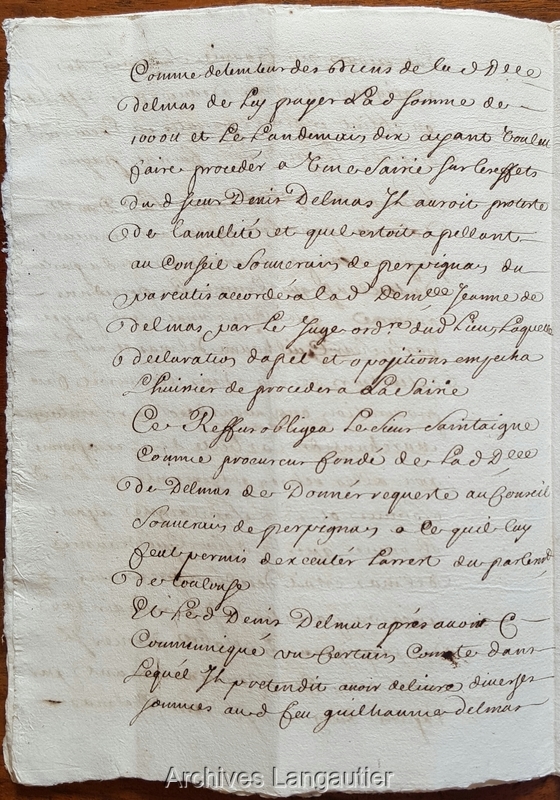 Comme detenteur des biens de la d Dlle
delmas de luy payer La d somme de
1000 ll et Le Landemain dix ayant voulu
faire proceder a Une Saisie Sur les effets
du d sieur Denis Delmas Il auroit protesté
de la nullité et quil estoit apellant
au Conseil Souverain de perpignan du
pareatis accordé a la d Demlle Jeanne de
delmas par Le Juge ordre dud Lieu Laquelle
declaration dapel et opositions empecha
Lhuisier de proceder a La Saisie
Ce Reffus obligea Le Sieur Saintaigne
Comme procureur fondé de La d Dlle
de Delmas de Donnér requette au Conseil
Souverain de perpignan a ce quil luy
feut permis dexecuter Larrest du parlemt
de toulouse
Et Le d Denis Delmas aprés avoir
Communiqué un Certain Compte dans
Lequél Il pretendit avoir delivré diverses
sommes au d feu guilhaume delmas
Archives Langautier